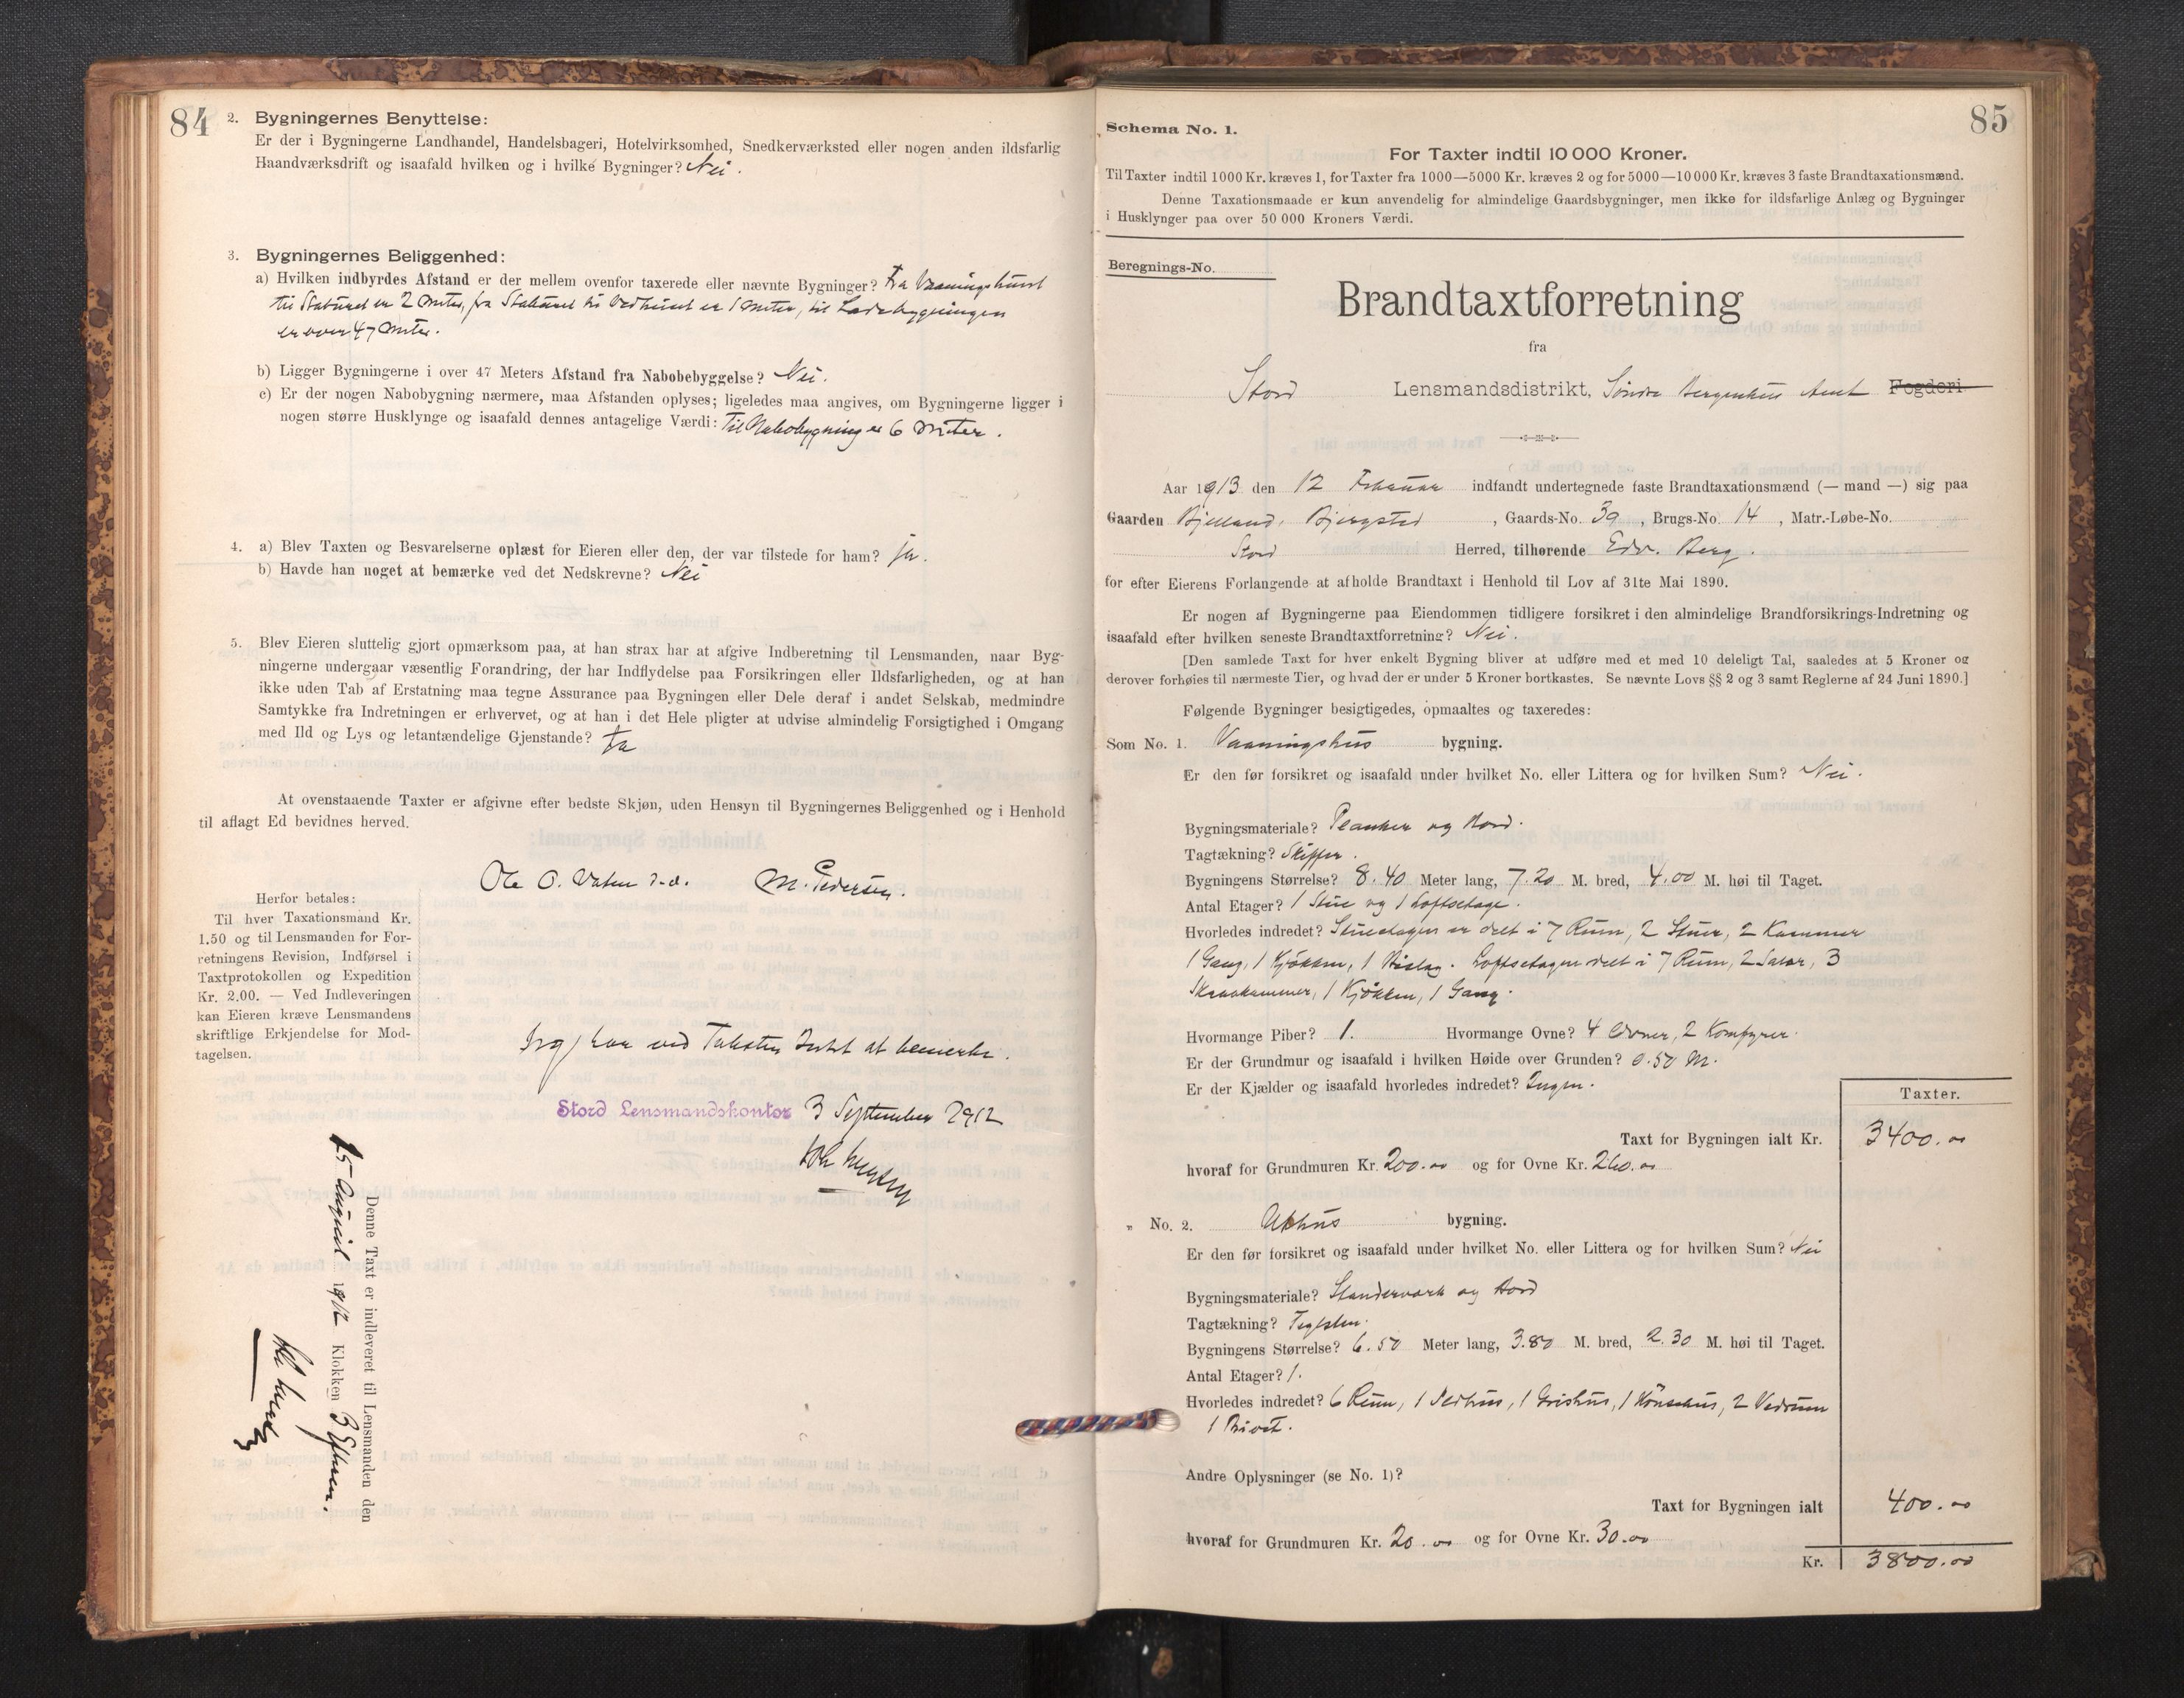 84
2. Bygningernes Benyttelse:
Er der i Bygningerne Landhandel, Handelsbageri, Hotelvirksomhed, Snedkerværksted eller nogen anden ildsfarlig
Haandværksdrift og isaafald hvilken og i hvilke Bygninger? Nei.
3. Bygningernes Beliggenhed:
a) Hvilken indbyrdes Afstand er der mellem ovenfor taxerede eller nævnte Bygninger? Fra Vaaningshuset
til Staburet er 2 Meter, fra Staburet til Vedhuset er 1 Meter, til Ladebygningen
er over 47 Meter.
b) Ligger Bygningerne i over 47 Meters Afstand fra Nabobebyggelse? Nei.
c) Er der nogen Nabobygning nærmere, maa Afstanden oplyses; ligeledes maa angives, om Bygningerne ligger i
nogen større Husklynge og isaafald dennes antagelige Værdi: Til Nabobygning er 6 Meter.
4. a) Blev Taxten og Besvarelserne oplæst for Eieren eller den, der var tilstede for ham? ja.
b) Havde han noget at bemærke ved det Nedskrevne? Nei
5. Blev Eieren sluttelig gjort opmærksom paa, at han strax har at afgive Indberetning til Lensmanden, naar Byg-
ningerne undergaar væsentlig Forandring, der har Indflydelse paa Forsikringen eller Ildsfarligheden, og at han
ikke uden Tab af Erstatning maa tegne Assurance paa Bygningen eller Dele deraf i andet Selskab, medmindre
Samtykke fra Indretningen er erhvervet, og at han i det Hele pligter at udvise almindelig Forsigtighed i Omgang
med Ild og Lys og letantændelige Gjenstande? Ja
At ovenstaaende Taxter er afgivne efter bedste Skjøn, uden Hensyn til Bygningernes Beliggenhed og i Henhold
til aflagt Ed bevidnes herved.
Ole O. M. Pedersen.
Herfor betales:
Til hver Taxationsmand Kr.
1.50 og til Lensmanden for For-
retningens Revision, Indførsel i
Taxtprotokollen og Expedition
Kr. 2.00. — Ved Indleveringen
kan Eieren kræve Lensmandens
skriftlige Erkjendelse for Mod-
tagelsen.
Jeg har ved Taksten Intet at bemerke.
Stord Lensmandskontor 3 September 1912
Denne Taxt er indleveret til Lensmanden den
15 August 1912 Klokken 3 Efterm.
85
Schema No. 1.
For Taxter indtil 10 000 Kroner.
Til Taxter indtil 1000 Kr. kræves 1, for Taxter fra 1000—5000 Kr. kræves 2 og for 5000—10 000 Kr. kræves 3 faste Brandtaxationsmænd.
Denne Taxationsmaade er kun anvendelig for almindelige Gaardsbygninger, men ikke for ildsfarlige Anlæg og Bygninger
i Husklynger paa over 50 000 Kroners Værdi.
Beregnings-No.
Brandtaxtforretning
fra
Stord Lensmandsdistrikt, Søndre Bergenhus Amt Fogderi
Aar 1913 den 12 Februar indfandt undertegnede faste Brandtaxationsmænd (— mand —) sig paa
Gaarden Bjelland, Bjergsted, Gaards-No. 39, Brugs-No. 14, Matr.-Løbe-No.
Stord Herred, tilhørende Edv. Berg.
for efter Eierens Forlangende at afholde Brandtaxt i Henhold til Lov af 31te Mai 1890.
Er nogen af Bygningerne paa Eiendommen tidligere forsikret i den almindelige Brandforsikrings-Indretning og
isaafald efter hvilken seneste Brandtaxtforretning? Nei.
[Den samlede Taxt for hver enkelt Bygning bliver at udføre med et med 10 deleligt Tal, saaledes at 5 Kroner og
derover forhøies til nærmeste Tier, og hvad der er under 5 Kroner bortkastes. Se nævnte Lovs §§ 2 og 3 samt Reglerne af 24 Juni 1890.]
Følgende Bygninger besigtigedes, opmaaltes og taxeredes:
Som No. 1. Vaaningshus bygning.
Er den før forsikret og isaafald under hvilket No. eller Littera og for hvilken Sum? Nei.
Bygningsmateriale? Planker og Bord.
Tagtækning? Skiffer.
Bygningens Størrelse? 8.40 Meter lang, 7.20 M. bred, 4.00 M. høi til Taget.
Antal Etager? 1 Stue og 1 Loftsetage.
Hvorledes indredet? Stueetagen er delt i 7 Rum, 2 Stuer, 2 Kammer
1 Gang, 1 Kjøkken, 1 Bislag. Loftsetagen delt i 7 Rum, 2 Saler, 3
Skraakammer, 1 Kjøkken, 1 Gang.
Hvormange Piber? 1. Hvormange Ovne? 4 Ovner, 2 Komfyrer.
Er der Grundmur og isaafald i hvilken Høide over Grunden? 0.50 M.
Er der Kjælder og isaafald hvorledes indredet? Ingen.
Taxter.
Taxt for Bygningen ialt Kr. 3400.00
hvoraf for Grundmuren Kr. 200.00 og for Ovne Kr. 260.00
" No. 2. Uthus bygning.
Er den før forsikret og isaafald under hvilket No. eller Littera og for hvilken Sum? Nei
Bygningsmateriale? Standerverk og Bord
Tagtækning? Teglsten.
Bygningens Størrelse? 6.50 Meter lang, 3.80 M. bred, 2.30 M. høi til Taget.
Antal Etager? 1.
Hvorledes indredet? 6 Rum, 1 Ildhus, 1 Grishus, 1 Hønsehus, 2 Vedrum
1 Privet.
Andre Oplysninger (se No. 1)?
Taxt for Bygningen ialt 400.00
hvoraf for Grundmuren Kr. 20.00 og for Ovne Kr. 30.00
Kr. 3800.00